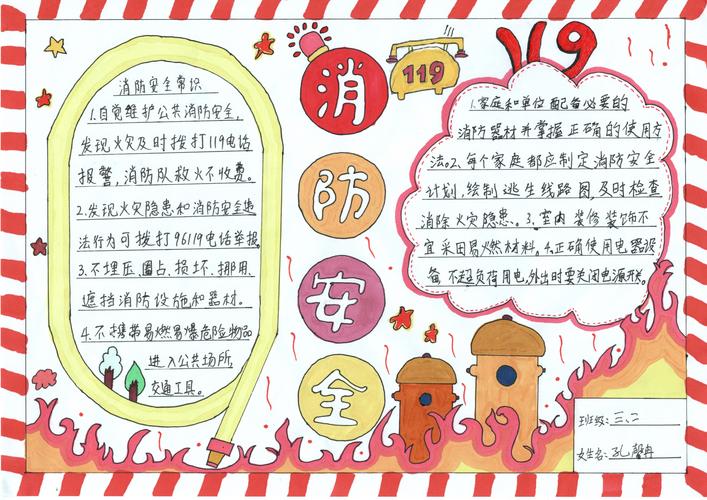 消防安全常识
1.自觉维护公共消防安全,
发现火灾及时拨打119电话
报警,消防队救火不收费。
2.发现火灾隐患和消防安全违
法行为可拨打96119电话举报。
3.不埋压、圈占、损坏、挪用、
遮挡消防设施和器材。
4.不携带易燃易爆危险物品
进入公共场所,
交通工具。
消
防
安
全
119
119
1.家庭和单位配备必要的
消防器材并掌握正确的使用方
法。2、每个家庭都应制定消防安全
计划,绘制逃生线路图,及时检查
消除火灾隐患、3.室内装修装饰不
宜采用易燃材料。4.正确使用电器设
备不超负荷用电,外出时要关闭电源开关。
班级:三、二
姓名:孔馨冉